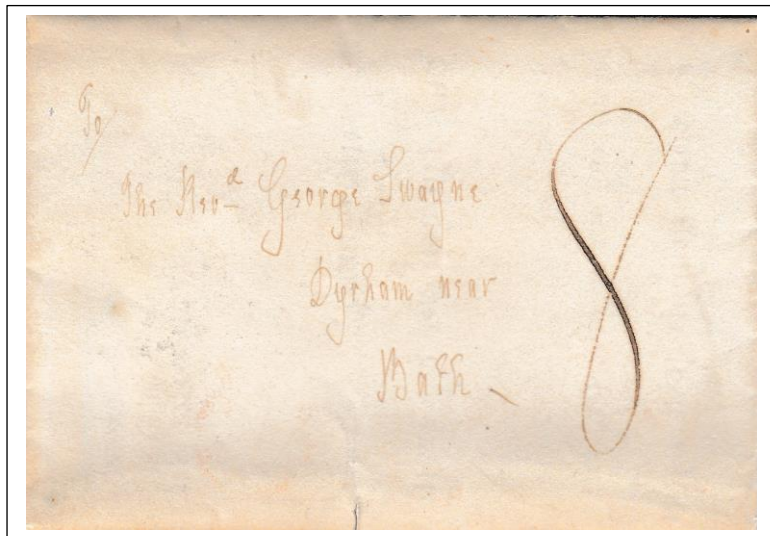 To
The Revd George Swayne 8
Dyrham near
Bath